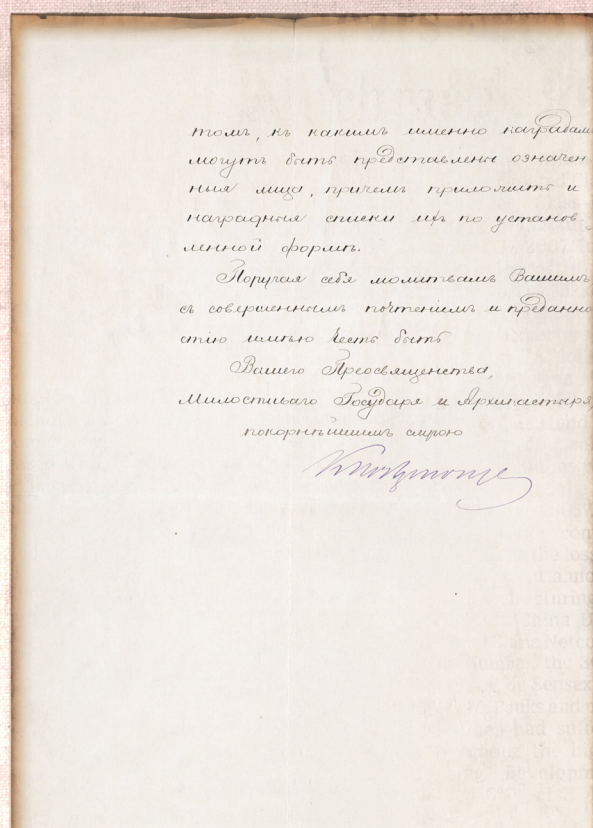 томъ, къ какимъ именно наградамъ
могутъ быть представлены означен-
ныя лица, причемъ приложить и
наградныя списки ихъ по установ-
ленной формѣ.
Поручая себя молитвамъ Вашимъ,
съ совершеннымъ почтеніемъ и преданно
стію имѣю честь быть
Вашего Преосвященства,
Милостиваго Государя и Архипастыря,
покорнѣйшимъ слугою